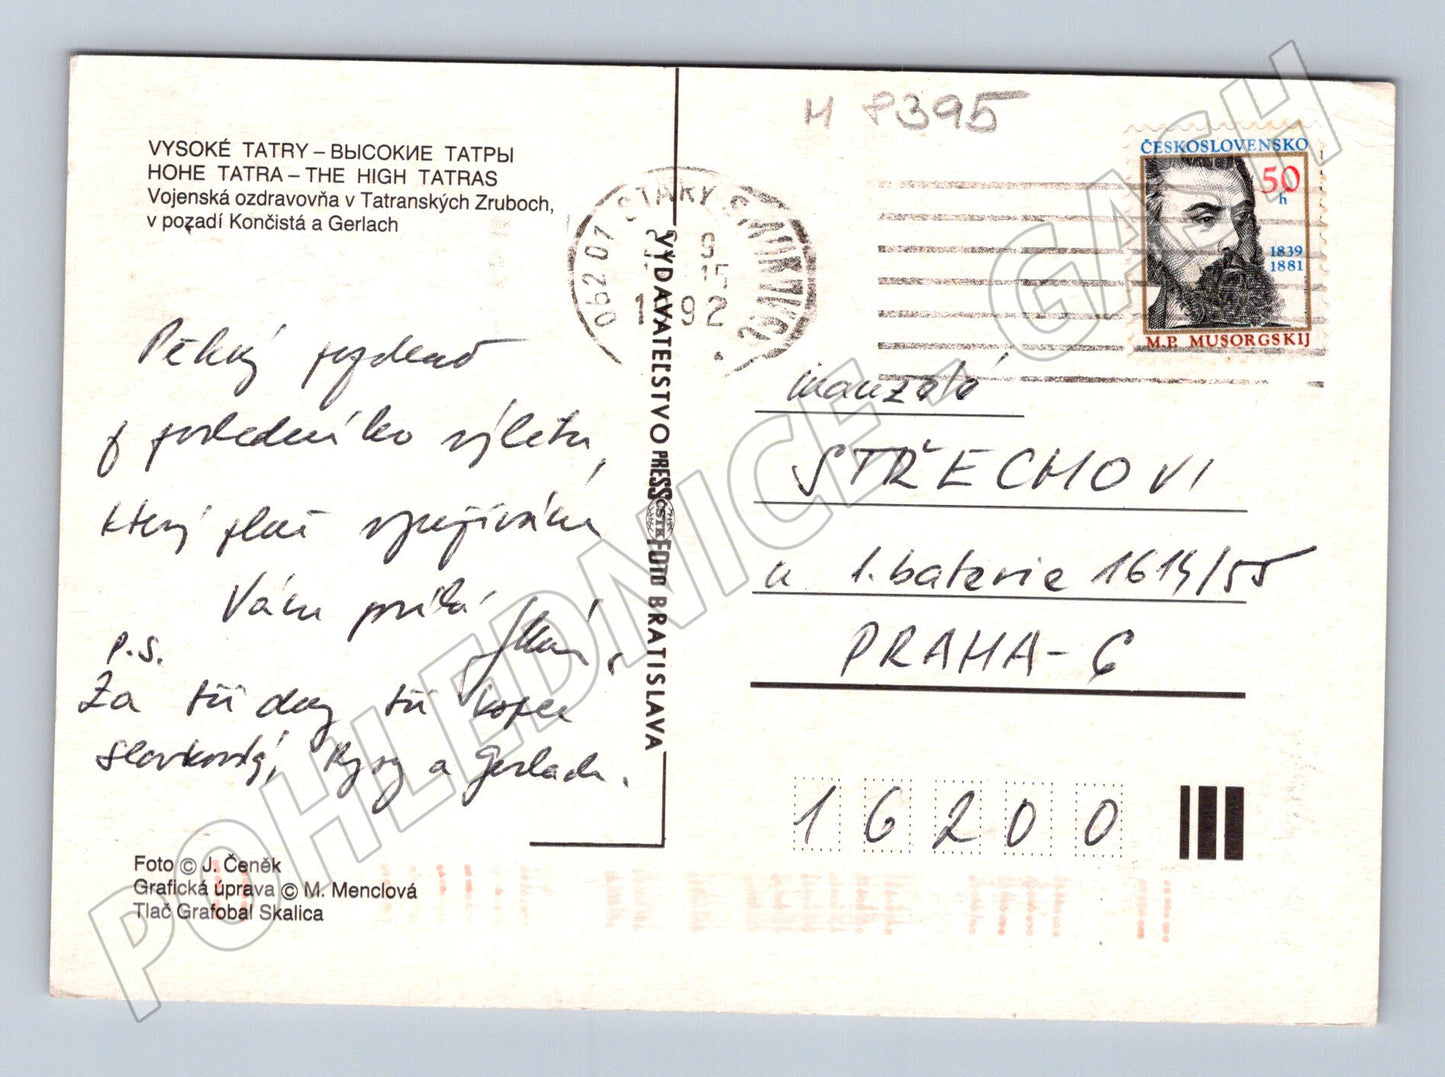 VYSOKÉ TATRY – ВЫСОКИЕ ТАТРЫ
HOHE TATRA – THE HIGH TATRAS
Vojenská ozdravovňa v Tatranských Zruboch,
v pozadí Končistá a Gerlach
Pěkný pozdrav
z posledního výletu,
který plně využívám
Vám posílá
P.S.
Za tři dny tři kopce
Slavkovský, Rysy a Gerlach.
Foto © J. Čeněk
Grafická úprava © M. Menclová
Tlač Grafobal Skalica
VYDAVATEĽSTVO PRESSFOTO BRATISLAVA
062 07 STARÝ SMOKOVEC
92
M 8395
ČESKOSLOVENSKO
50
h
1839
1881
M.P. MUSORGSKIJ
manželé
STŘECHOVI
u 1. baterie 1614/55
PRAHA - 6
16200
POHLEDNICE - GASH